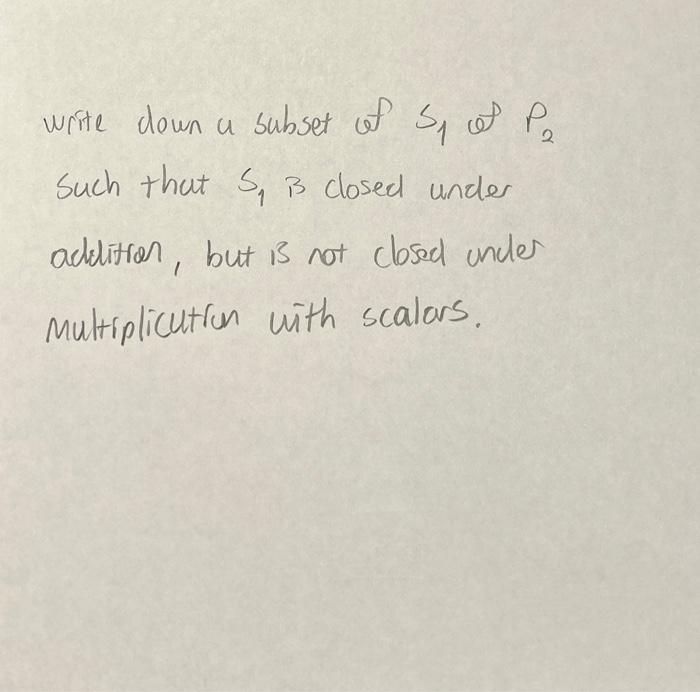 write down a subset of S₁ of P₂
such that S₁ is closed under
addition, but is not closed under
multiplication with scalars.